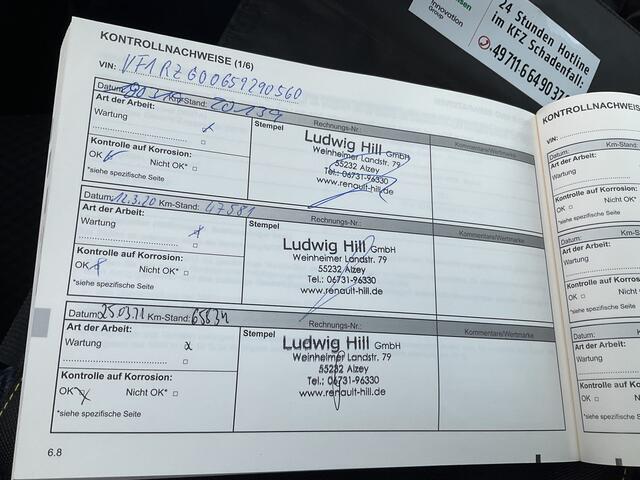 24 Stunden Hotline
im KFZ Schadenfall:
Innovation
Group
KONTROLLNACHWEISE (1/6)
VIN: VF1RZG00659290560
Datum: Km-Stand: 20139
Art der Arbeit:
Wartung x
Kontrolle auf Korrosion:
OK Nicht OK*
*siehe spezifische Seite
Stempel
Rechnungs-Nr.:
Kommentare/Wertmarke
Ludwig Hill GmbH
Weinheimer Landstr. 79
55232 Alzey
Tel.: 06731-96330
www.renault-hill.de
Datum: 12.3.20 Km-Stand: 47581
Art der Arbeit:
Wartung x
Kontrolle auf Korrosion:
OK x Nicht OK*
*siehe spezifische Seite
Stempel
Rechnungs-Nr.:
Kommentare/Wertmarke
Ludwig Hill GmbH
Weinheimer Landstr. 79
55232 Alzey
Tel.: 06731-96330
www.renault-hill.de
Datum: 25.03.21 Km-Stand: 65834
Art der Arbeit:
Wartung x
Kontrolle auf Korrosion:
OK x Nicht OK*
*siehe spezifische Seite
Stempel
Rechnungs-Nr.:
Kommentare/Wertmarke
Ludwig Hill GmbH
Weinheimer Landstr. 79
55232 Alzey
Tel.: 06731-96330
www.renault-hill.de
6.8
KONTROLLNACHWEISE
VIN:
Datum: Km-Stand:
Art der Arbeit:
Wartung
Kontrolle auf Korrosion:
OK Nicht OK*
*siehe spezifische Seite
Datum: Km-Stand:
Art der Arbeit:
Wartung
Kontrolle auf Korrosion:
OK Nicht OK*
*siehe spezifische Seite
Datum: Km-
Art der Arbeit:
Wartung
Kontrolle auf Korrosion:
OK Nicht OK
*siehe spezifische Seite